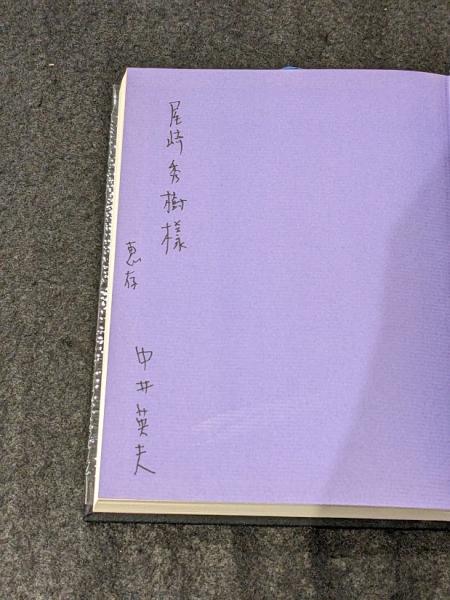 尾崎秀樹様
恵存
中井英夫